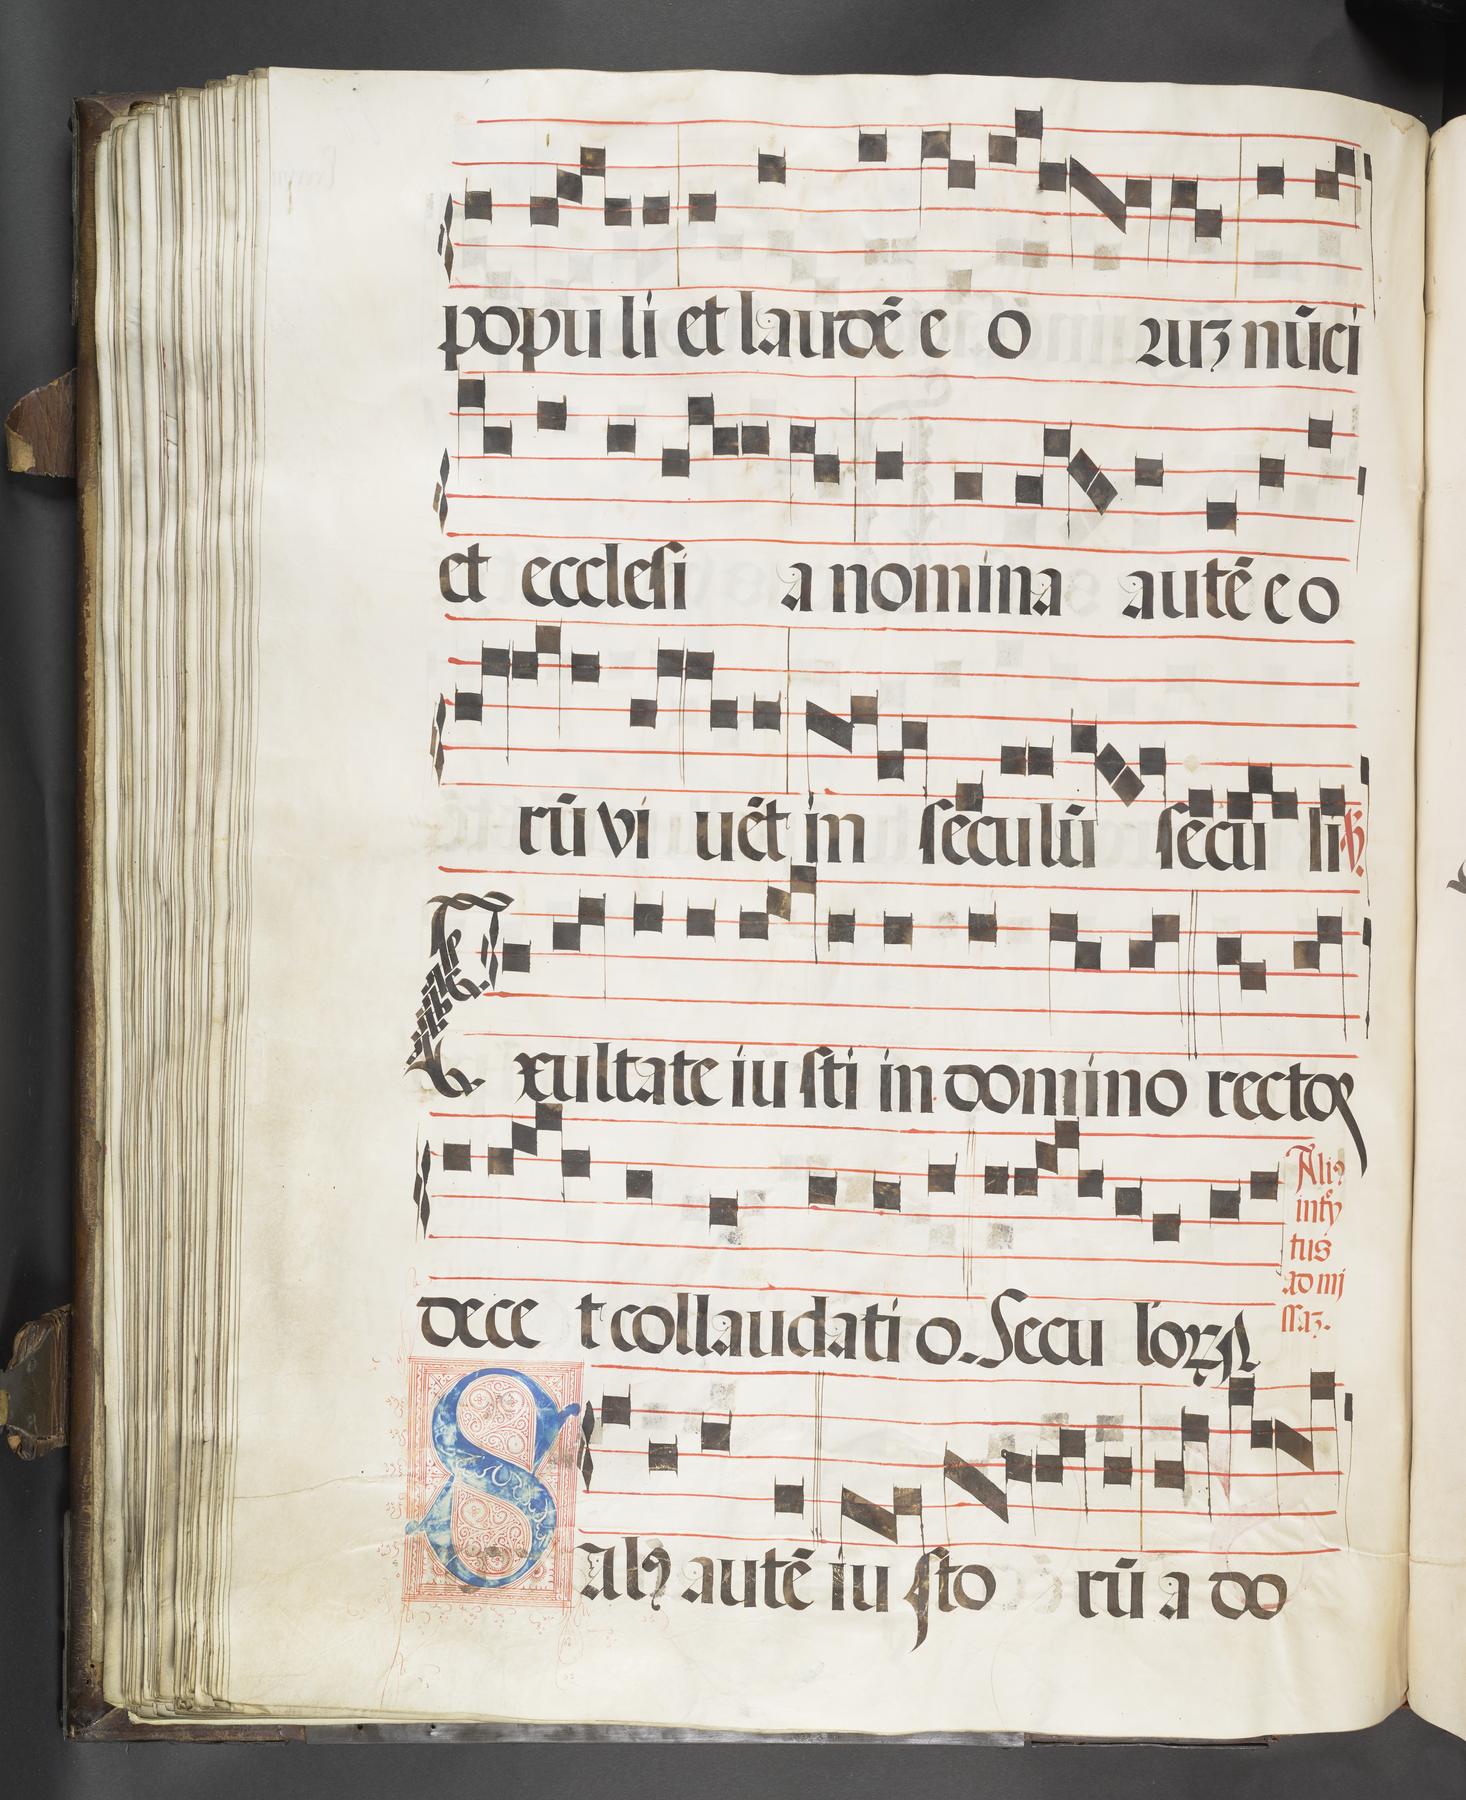 popu li et laudē e o ꝛuꝫ nūci
et ecclesi a nomina autē e o
rū vi uēt in seculū secu li ℣.
E xultate iu sti in domino rectos
dece t collaudati o. Secu loꝝ A
Aliꝰ
int̄y
tus
ad mi
ssaꝫ.
Salꝰ autē iu sto rū a do